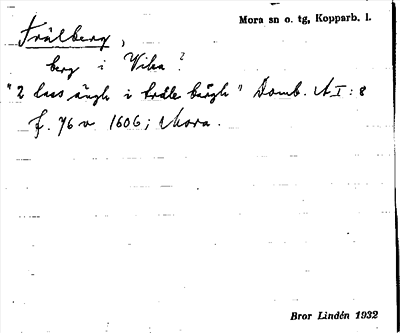 Mora sn o. tg, Kopparb. l.
Trälberg,
berg i Vika?
"2 lass ängh i trälle bärgh" Domb. AI:8
f. 76 v 1606; Mora.
Bror Lindén 1932